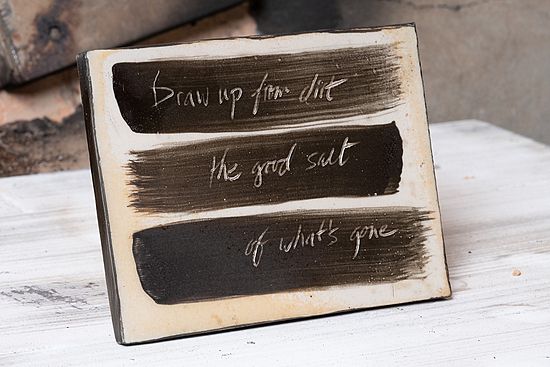 Draw up from dirt
the good salt
of what's gone